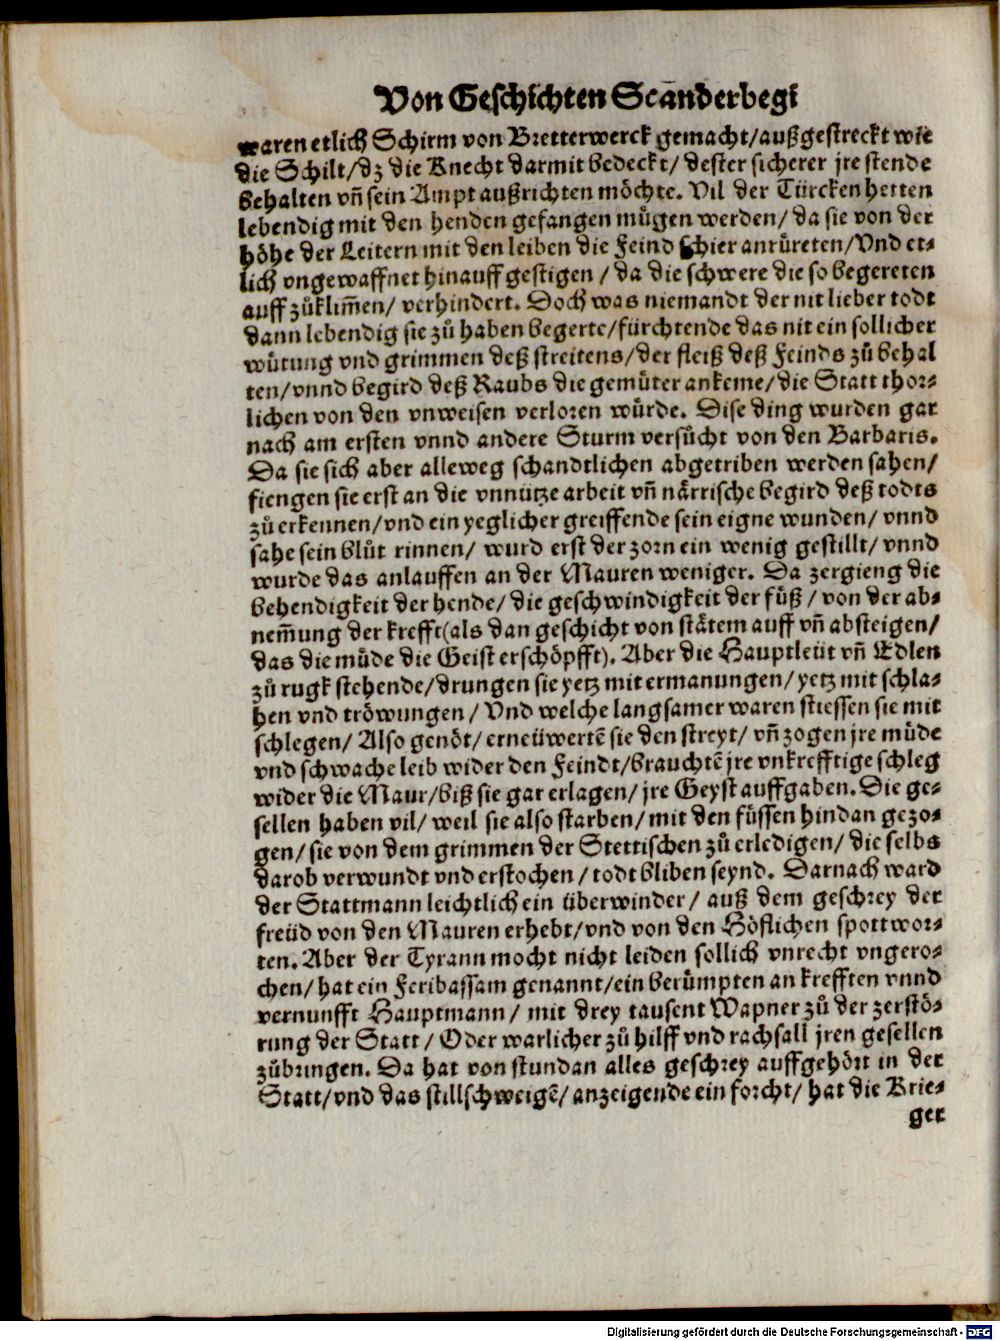 Von Geschichten Scanderbegi
waren etlich Schirm von Bretterwerck gemacht/außgestreckt wie
die Schilt/dz die Knecht darmit bedeckt/ dester sicherer jre stende
behalten vñ sein Ampt außrichten möchte. Vil der Türcken hetten
lebendig mit den henden gefangen mügen werden/ da sie von der
höhe der Leitern mit den leiben die Feind schier anrüreten/Vnd et-
lich vngewaffnet hinauff gestigen / da die schwere die so begereten
auff zůklim̃en/ verhindert. Doch was niemandt der nit lieber todt
dann lebendig sie zů haben begerte/fürchtende das nit ein sollicher
wütung vnd grimmen deß streitens/der fleiß deß Feinds zů behal
ten/vnnd begird deß Raubs die gemüter ankeme/die Statt thor-
lichen von den vnweisen verloren würde. Dise ding wurden gar
nach am ersten vnnd andere Sturm versůcht von den Barbaris.
Da sie sich aber alleweg schandtlichen abgetriben werden sahen/
fiengen sie erst an die vnnütze arbeit vñ närrische begird deß todts
zů erkennen/vnd ein yeglicher greiffende sein eigne wunden/ vnnd
sahe sein blůt rinnen/ wurd erst der zorn ein wenig gestillt/ vnnd
wurde das anlauffen an der Mauren weniger. Da zergieng die
behendigkeit der hende/ die geschwindigkeit der füß / von der ab-
nem̃ung der krefft(als dan geschicht von stätem auff vñ absteigen/
das die müde die Geist erschöpfft). Aber die Hauptleüt vñ Edlen
zů rugk stehende/drungen sie yetz mit ermanungen/ yetz mit schla-
hen vnd tröwungen / Vnd welche langsamer waren stiessen sie mit
schlegen/ Also genöt/ erneüwertẽ sie den streyt/ vñ zogen jre müde
vnd schwache leib wider den Feindt/brauchtẽ jre vnkrefftige schleg
wider die Maur/biß sie gar erlagen/ jre Geyst auffgaben. Die ge-
sellen haben vil/ weil sie also starben/ mit den füssen hindan gezo-
gen/ sie von dem grimmen der Stettischen zů erledigen/ die selbs
darob verwundt vnd erstochen / todt bliben seynd. Darnach ward
der Stattmann leichtlich ein überwinder / auß dem geschrey der
freüd von den Mauren erhebt/vnd von den Höflichen spottwor-
ten. Aber der Tyrann mocht nicht leiden sollich vnrecht vngero-
chen/ hat ein Feribassam genannt/ein berümpten an krefften vnnd
vernunfft Hauptmann/ mit drey tausent Wapner zů der zerstö-
rung der Statt / Oder warlicher zů hilff vnd rachsall jren gesellen
zůbringen. Da hat von stundan alles geschrey auffgehört in der
Statt/vnd das stillschweigẽ/ anzeigende ein forcht/ hat die Krie-
ger
Digitalisierung gefördert durch die Deutsche Forschungsgemeinschaft - DFG